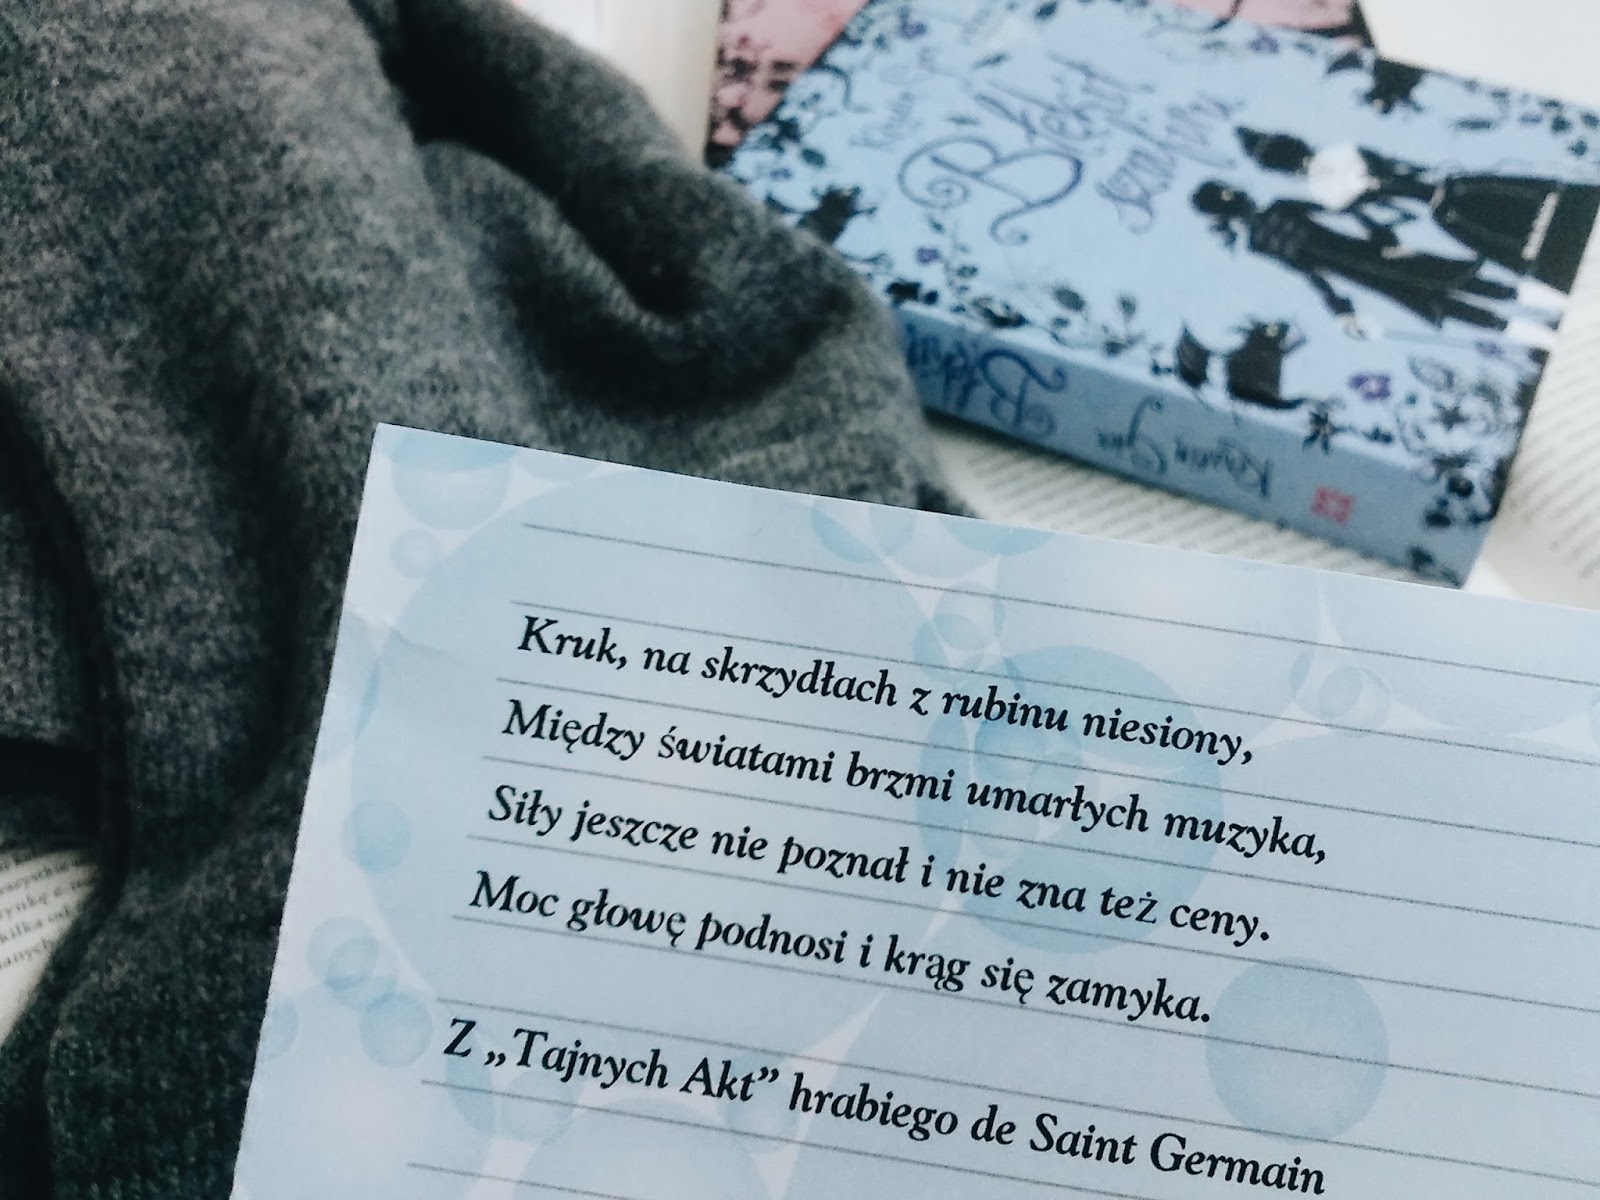 Kruk, na skrzydłach z rubinu niesiony,
Między światami brzmi umarłych muzyka,
Siły jeszcze nie poznał i nie zna też ceny.
Moc głowę podnosi i krąg się zamyka.
Z „Tajnych Akt” hrabiego de Saint Germain
Błękit
szafiru
Kerstin Gier
Błękit